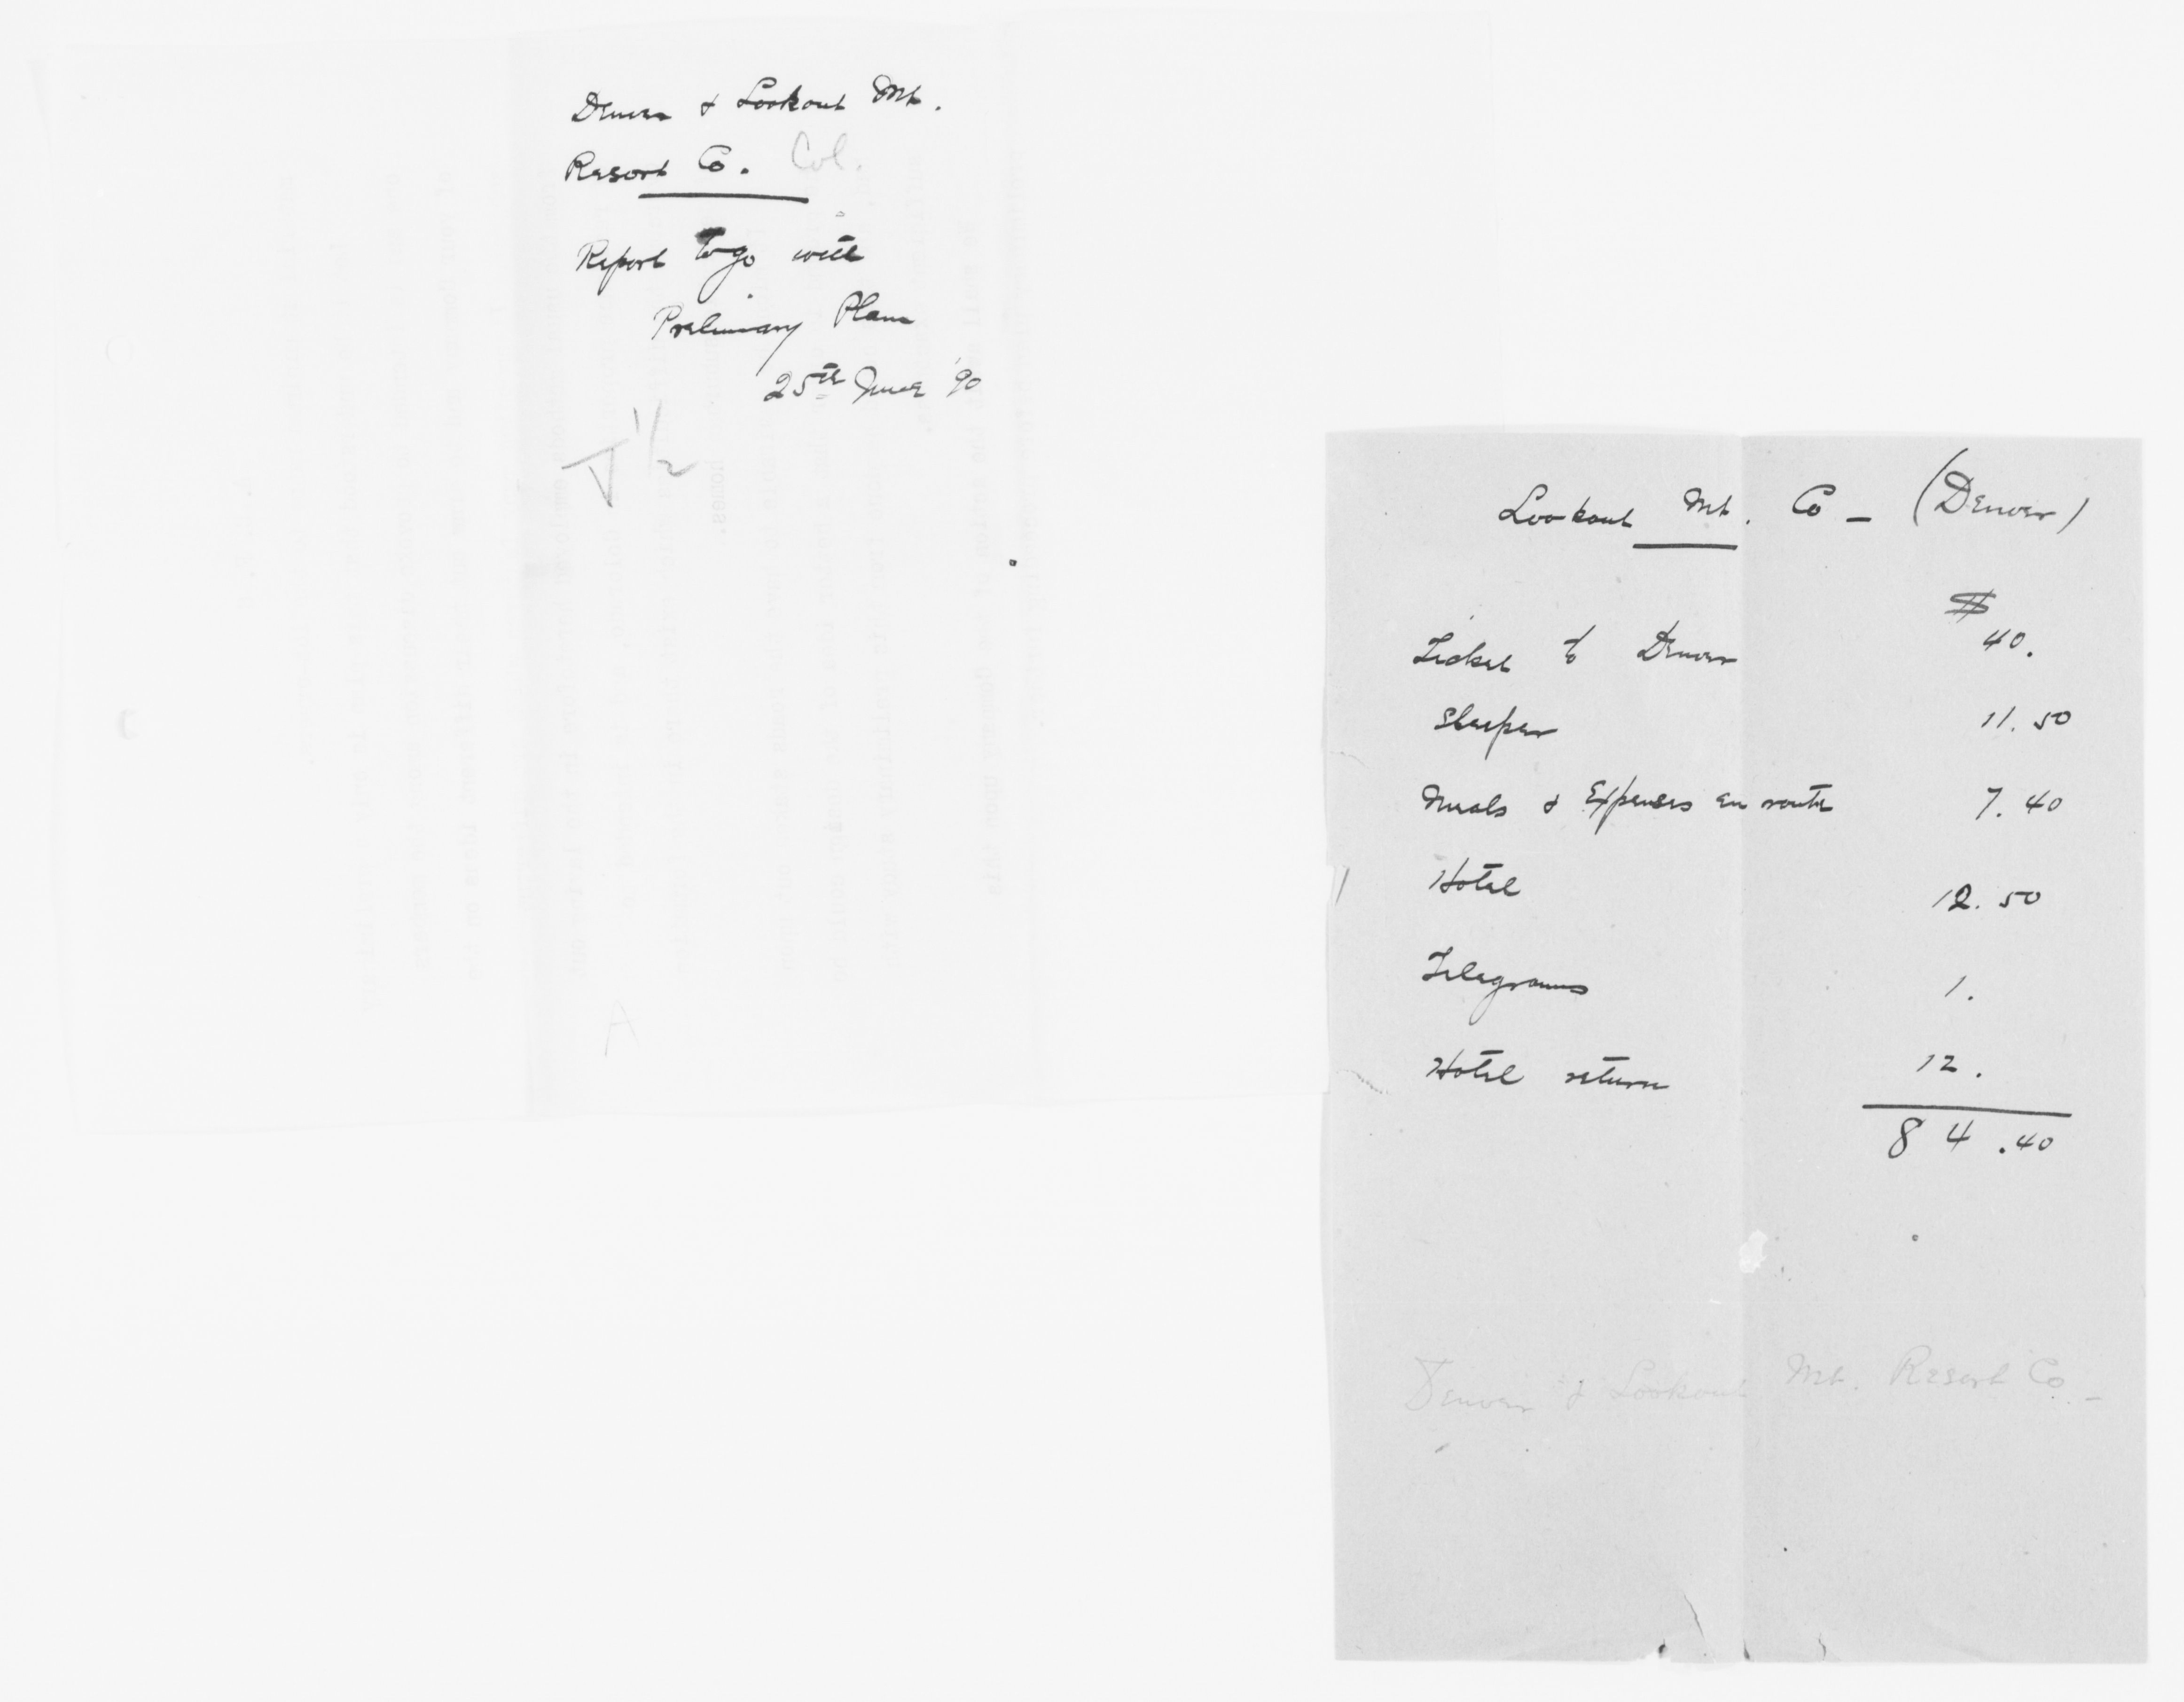 Denver & Lookout Mt.
Resort Co. Col.
Report to go with
Preliminary Plan
25th June '90
A
Lookout Mt. Co - (Denver)
$
Ticket to Denver 40.
Sleeper 11.50
Meals & Expenses en route 7.40
Hotel 12.50
Telegrams 1.
Hotel return 12.
84.40
Denver & Lookout Mt. Resort Co -